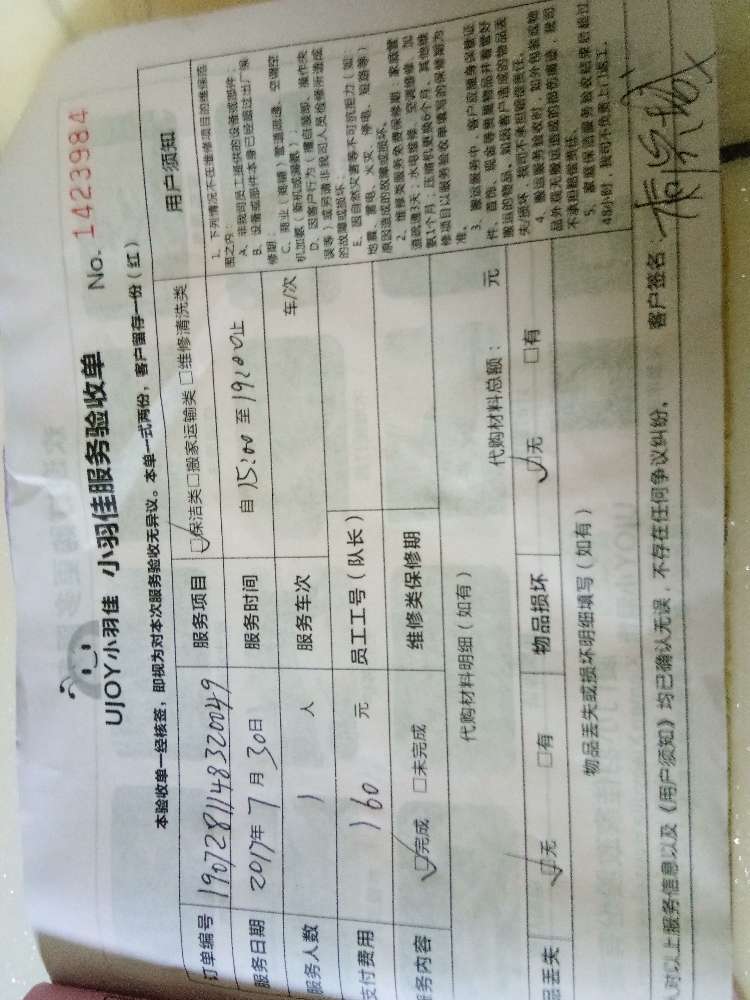 UJOY小羽佳 小羽佳服务验收单
No. 1423984
本验收单一经核签，即视为对本次服务验收无异议。本单一式两份，客户留存一份（红）
订单编号 1907281148320049 服务项目 ☑保洁类□搬家运输类□维修清洗类
服务日期 2017年7月30日 服务时间 自15:00至19:00止
服务人数 1 人 服务车次 车/次
支付费用 160 元 员工工号（队长）
服务内容 ☑完成 □未完成 维修类保修期
代购材料明细（如有） 代购材料总额： 元
品丢失 ☑无 □有 物品损坏 ☑无 □有
物品丢失或损坏明细填写（如有）
对以上服务信息以及《用户须知》均已确认无误，不存在任何争议纠纷。 客户签名：
用户须知
1、下列情况不在维修项目的维保范
围之内：
A、非我司员工提供的设备或部件；
B、设备或部件本身已经超过出厂保
修期；
C、商业（商铺）管道疏通、空调空
机加氨（新机或漏氨）；
D、因客户行为（擅自装卸、操作失
误等）或另请非我司人员检修所造成
的故障或损坏；
E、因自然灾害等不可抗拒力（如：
地震、雷电、火灾、停电、短路等）
原因造成的故障或损坏。
2、维修类服务免费保修期：家庭管
道疏通3天；水电维修、空调维修、加
氨1个月，压缩机更换6个月，其他维
修项目以服务验收单填写的保修期为
准。
3、搬运服务中，客户应随身保管证
件、首饰、现金等贵重物品并看管好
搬运的物品，如因客户造成的物品丢
失/损坏，我司不承担赔偿责任。
4、搬运服务验收时，如外包装或物
品外观无搬运造成的损伤痕迹，我司
不承担赔偿责任。
5、家庭保洁服务验收结束后超过
48小时，我司不负责上门返工。